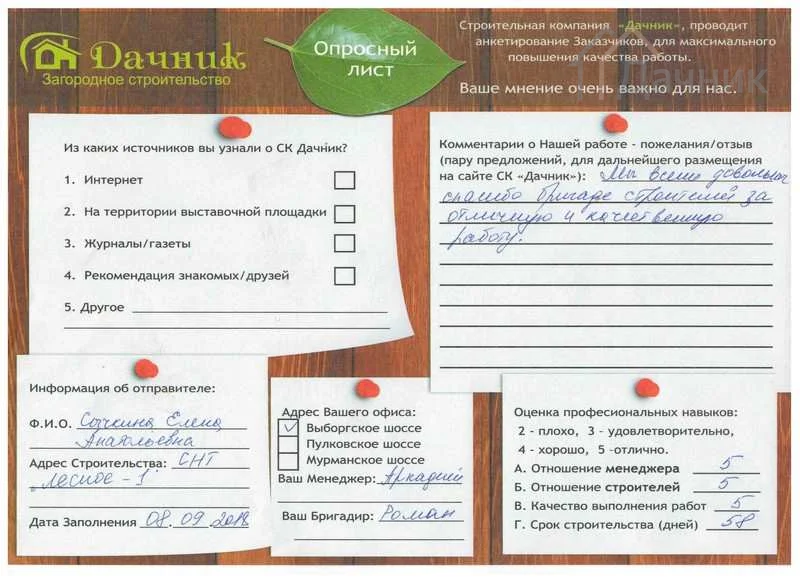 Дачник
Загородное строительство
Опросный
лист
Строительная компания «Дачник», проводит
анкетирование Заказчиков, для максимального
повышения качества работы.
Ваше мнение очень важно для нас.
Дачник
Из каких источников вы узнали о СК Дачник?
1. Интернет
2. На территории выставочной площадки
3. Журналы/газеты
4. Рекомендация знакомых/друзей
5. Другое
Комментарии о Нашей работе - пожелания/отзыв
(пару предложений, для дальнейшего размещения
на сайте СК «Дачник»): Мы всеми довольны
спасибо бригаде строителей за
отличную и качественную
работу.
Информация об отправителе:
Ф.И.О. Сычкина Елена
Анатольевна
Адрес Строительства: СНТ
"Лесное-1"
Дата Заполнения 08.09.2018
Адрес Вашего офиса:
Выборгское шоссе
Пулковское шоссе
Мурманское шоссе
Ваш Менеджер: Аркадий
Ваш Бригадир: Роман
Оценка професиональных навыков:
2 - плохо, 3 - удовлетворительно,
4 - хорошо, 5 -отлично.
А. Отношение менеджера 5
Б. Отношение строителей 5
В. Качество выполнения работ 5
Г. Срок строительства (дней) 58